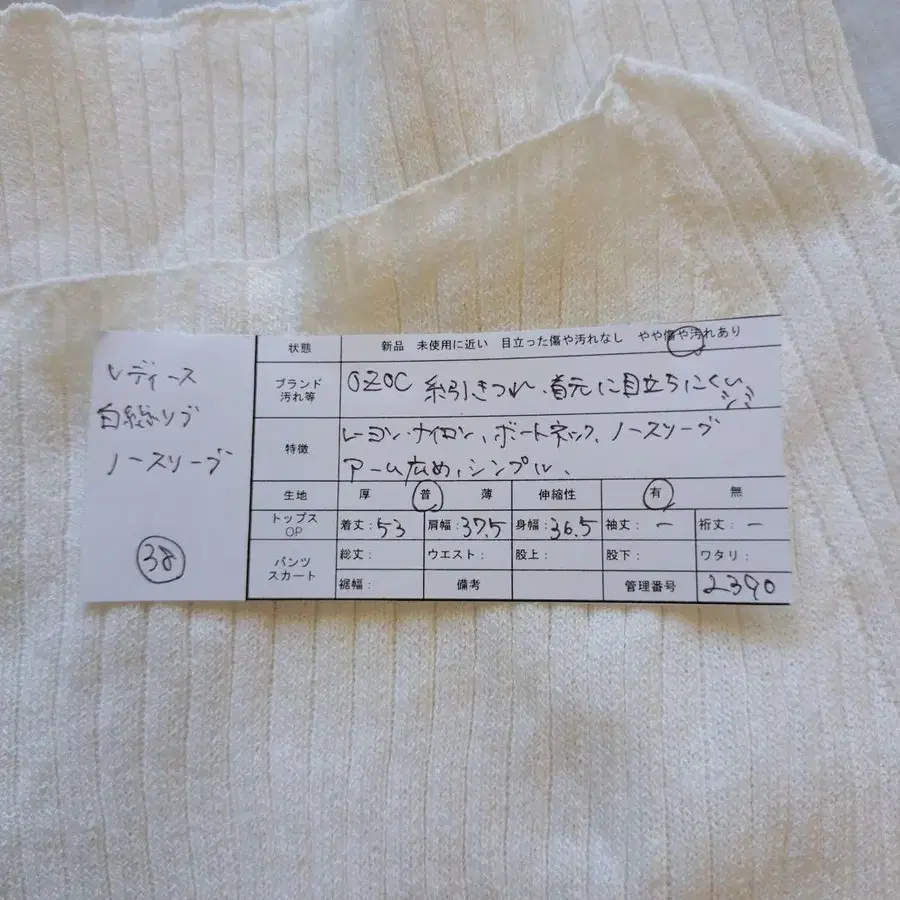 レディース
白総リブ
ノースリーブ
38
状態 新品 未使用に近い 目立った傷や汚れなし やや傷や汚れあり
ブランド 汚れ等 OZOC 糸引きつれ、首元に目立ちにくい
シミ
特徴 レーヨン・ナイロン、ボートネック、ノースリーブ
アーム広め、シンプル、
生地 厚 普 薄 伸縮性 有 無
トップス OP 着丈：53 肩幅：37.5 身幅：36.5 袖丈：ー 裄丈：ー
パンツ スカート 総丈： ウエスト： 股上： 股下： ワタリ：
裾幅： 備考 管理番号 2390